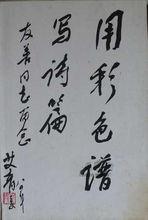 用彩色谱
写诗篇
友善同志留念
艾青